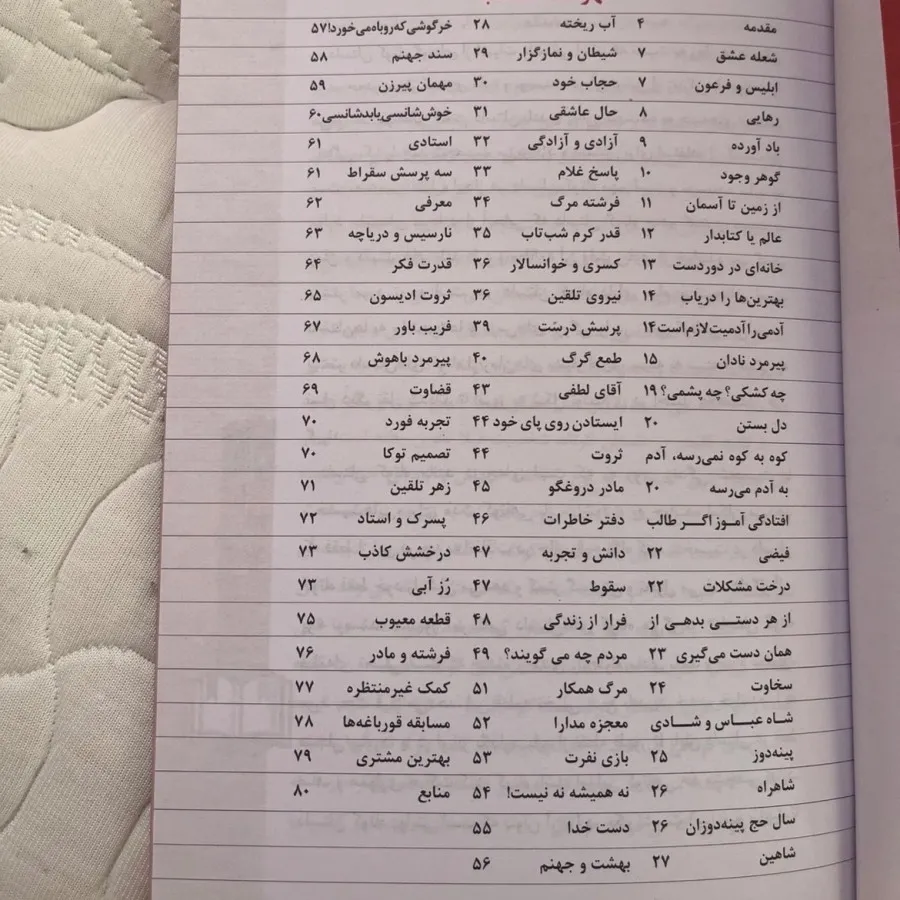 مقدمه ۴
شعله عشق ۷
ابلیس و فرعون ۷
رهایی ۸
باد آورده ۹
گوهر وجود ۱۰
از زمین تا آسمان ۱۱
عالم یا کتابدار ۱۲
خانه‌ای در دوردست ۱۳
بهترین‌ها را دریاب ۱۴
آدمی را آدمیت لازم است ۱۴
پیرمرد نادان ۱۵
چه کشکی؟ چه پشمی؟ ۱۹
دل بستن ۲۰
کوه به کوه نمی‌رسه، آدم
به آدم می‌رسه ۲۰
افتادگی آموز اگر طالب
فیضی ۲۲
درخت مشکلات ۲۲
از هر دستی بدهی از
همان دست می‌گیری ۲۳
سخاوت ۲۴
شاه عباس و شادی
پینه‌دوز ۲۵
شاهراه ۲۶
سال حج پینه‌دوزان ۲۶
شاهین ۲۷
آب ریخته ۲۸
شیطان و نمازگزار ۲۹
حجاب خود ۳۰
حال عاشقی ۳۱
آزادی و آزادگی ۳۲
پاسخ غلام ۳۳
فرشته مرگ ۳۴
قدر کرم شب‌تاب ۳۵
کسری و خوانسالار ۳۶
نیروی تلقین ۳۶
پرسش درست ۳۹
طمع گرگ ۴۰
آقای لطفی ۴۳
ایستادن روی پای خود ۴۴
ثروت ۴۴
مادر دروغگو ۴۵
دفتر خاطرات ۴۶
دانش و تجربه ۴۷
سقوط ۴۷
فرار از زندگی ۴۸
مردم چه می گویند؟ ۴۹
مرگ همکار ۵۱
معجزه مدارا ۵۲
بازی نفرت ۵۳
نه همیشه نه نیست! ۵۴
دست خدا ۵۵
بهشت و جهنم ۵۶
خرگوشی که روباه می‌خورد! ۵۷
سند جهنم ۵۸
مهمان پیرزن ۵۹
خوش‌شانسی یا بدشانسی ۶۰
استادی ۶۱
سه پرسش سقراط ۶۱
معرفی ۶۲
نارسیس و دریاچه ۶۳
قدرت فکر ۶۴
ثروت ادیسون ۶۵
فریب باور ۶۷
پیرمرد باهوش ۶۸
قضاوت ۶۹
تجربه فورد ۷۰
تصمیم توکا ۷۰
زهر تلقین ۷۱
پسرک و استاد ۷۲
درخشش کاذب ۷۳
رُز آبی ۷۳
قطعه معیوب ۷۵
فرشته و مادر ۷۶
کمک غیرمنتظره ۷۷
مسابقه قورباغه‌ها ۷۸
بهترین مشتری ۷۹
منابع ۸۰